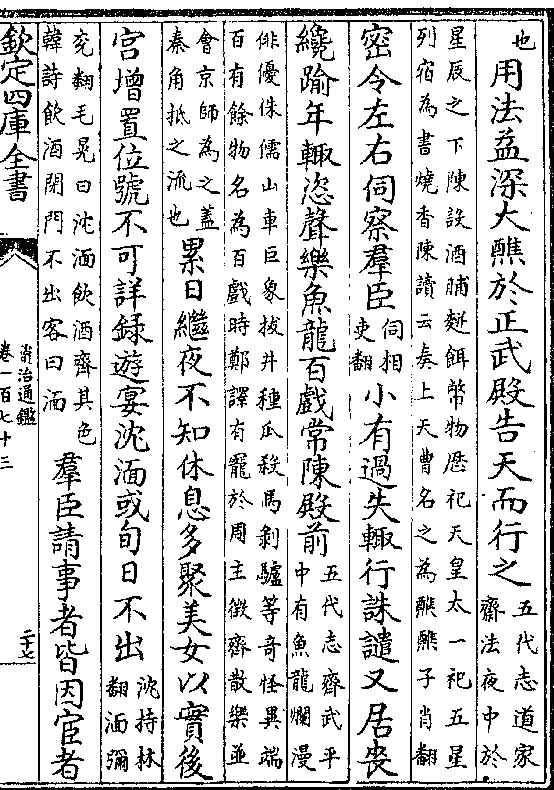 也
用法益深大醮於正武殿告天而行之
五代志道家
齋法夜中於
星辰之下陳設酒脯麫餌幣物歷祀天皇太一祀五星
列宿為書燒香陳讀云奏上天曹名之為醮醮子肖翻
密令左右伺察羣臣
伺相
吏翻
小有過失輒行誅譴又居喪
纔踰年輒恣聲樂魚龍百戲常陳殿前
五代志齊武平
中有魚龍爛漫
俳優侏儒山車巨象拔井種瓜殺馬剝驢等奇怪異端
百有餘物名為百戲時鄭譯有寵於周主徵齊散樂並
會京師為之蓋
秦角抵之流也
累日繼夜不知休息多聚美女以實後
宮增置位號不可詳録遊宴沈湎或旬日不出
沈持林
翻湎彌
兖翻毛晃曰沈湎飲酒齊其色
韓詩飲酒閉門不出客曰湎
羣臣請事者皆因宦者
欽定四庫全書
資治通鑑
卷一百七十三
二十七